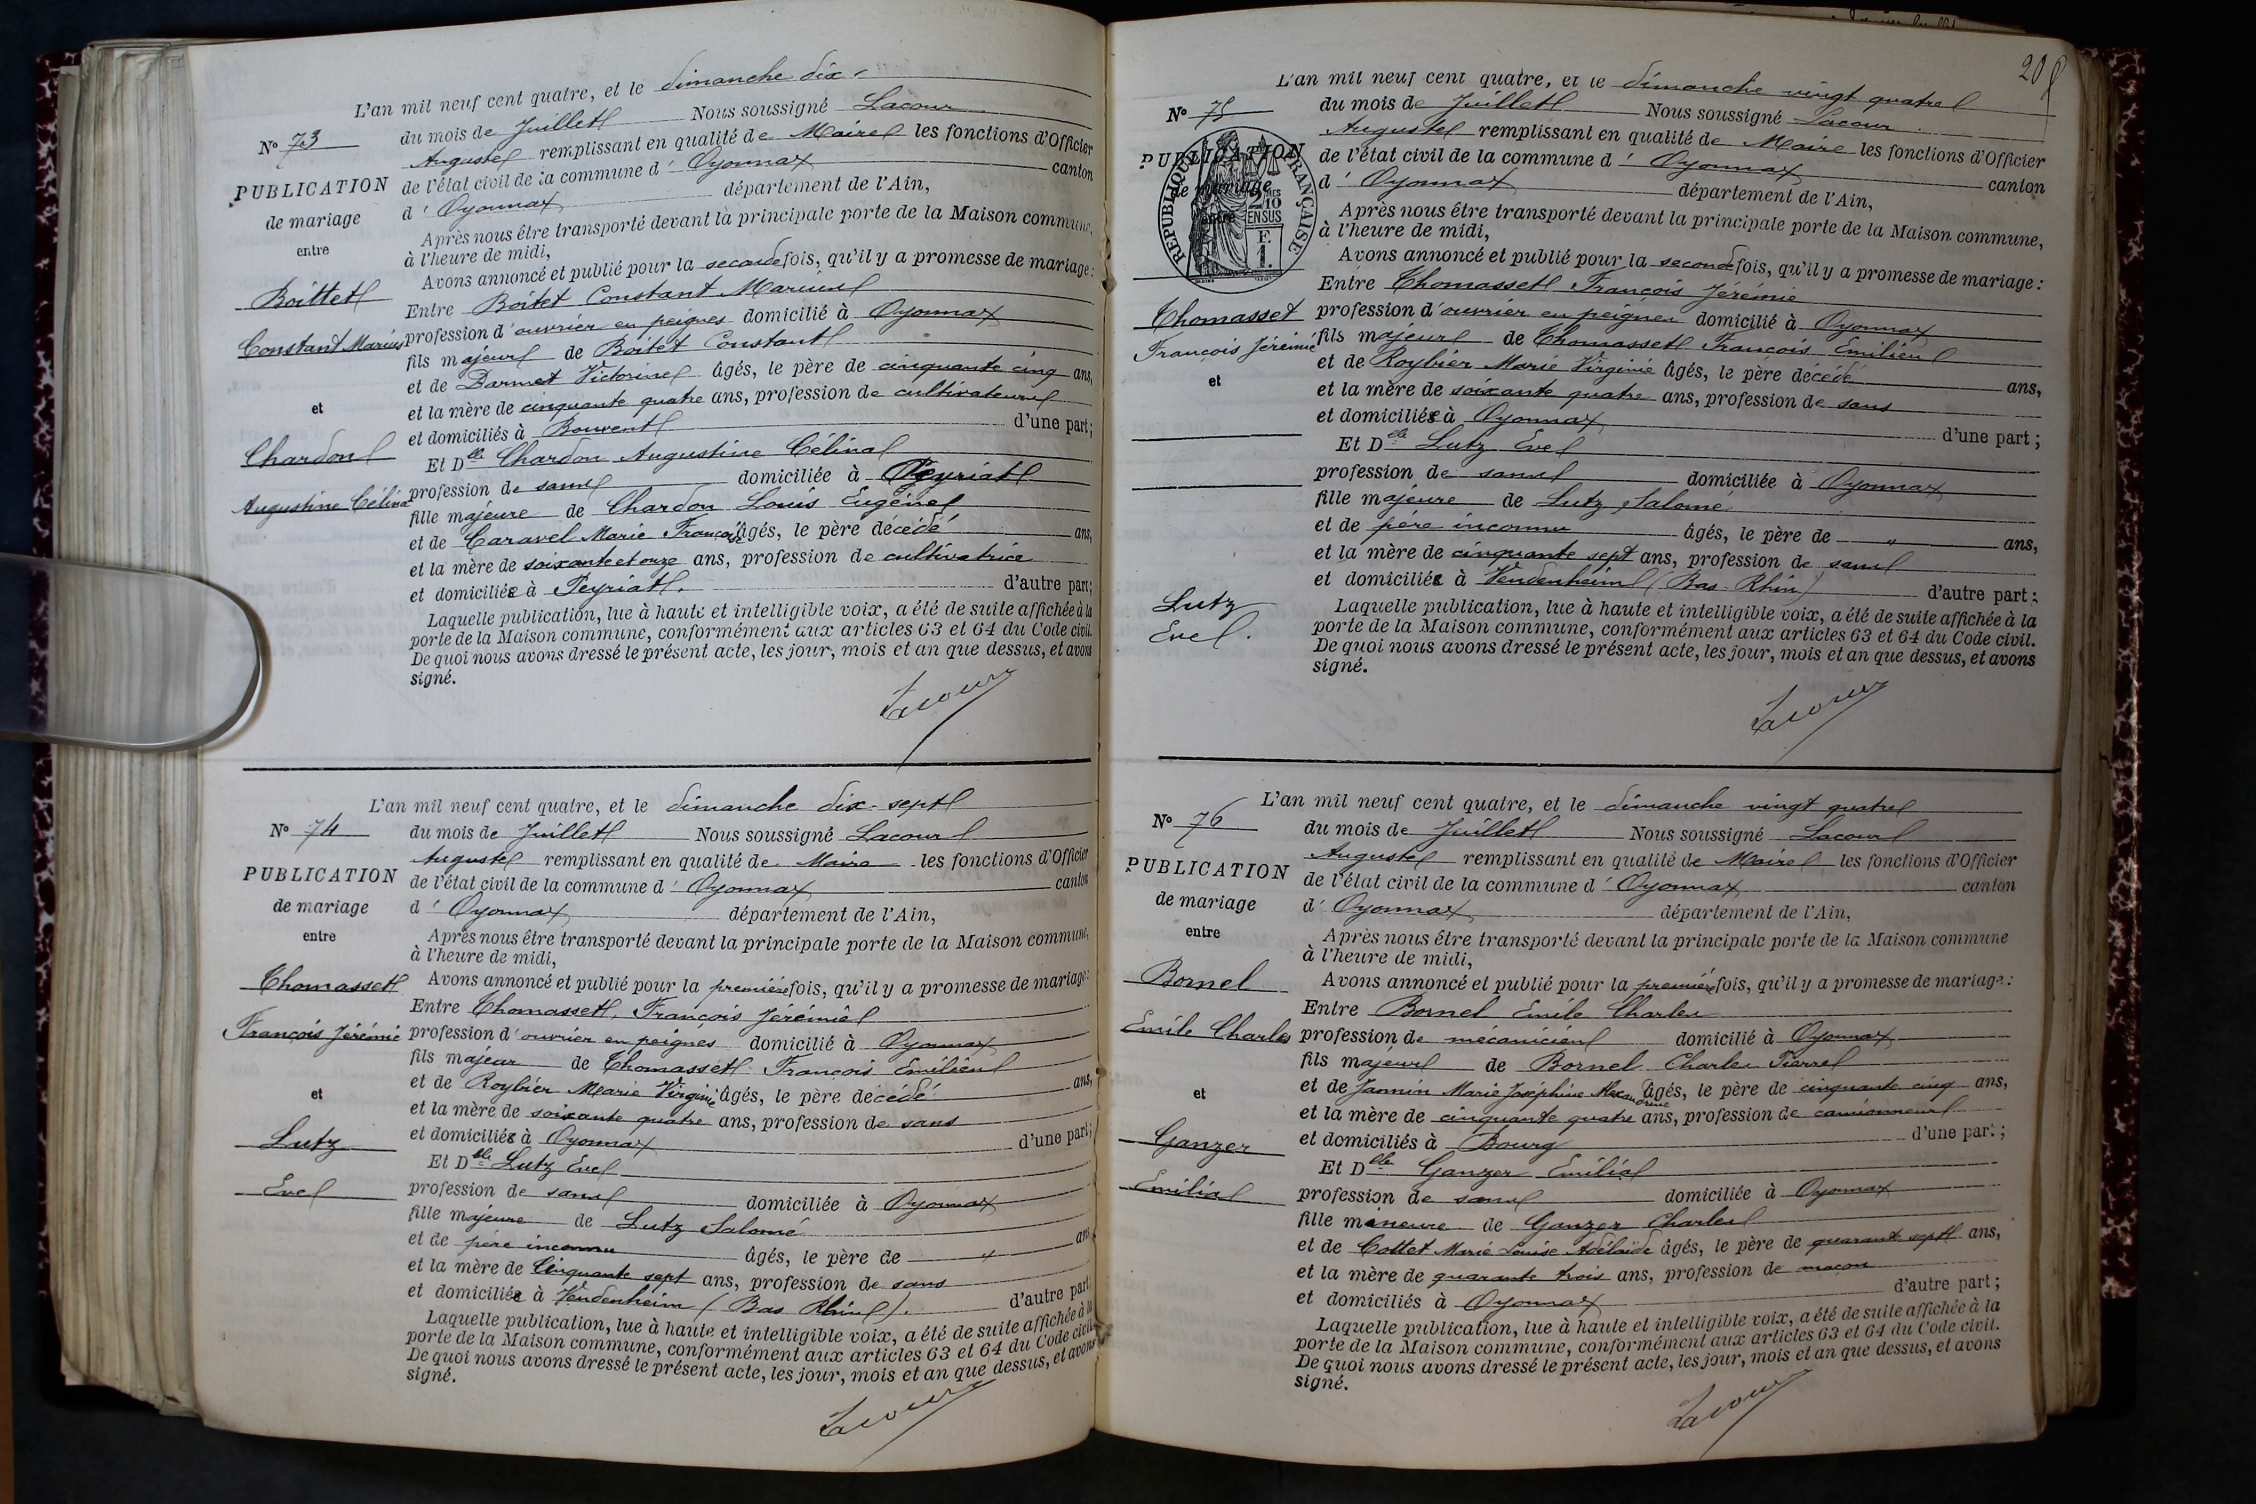 L'an mil neuf cent quatre, et le dimanche dix
N° 73
du mois de Juillet Nous soussigné Lacour
Auguste remplissant en qualité de Maire les fonctions d'Officier
PUBLICATION
de l'état civil de la commune d' Oyonnax canton
de mariage
d' Oyonnax département de l'Ain,
entre
Après nous être transporté devant la principale porte de la Maison commune,
à l'heure de midi,
Avons annoncé et publié pour la seconde fois, qu'il y a promesse de mariage :
Boittet
Entre Boitet Constant Marius
Constant Marius
profession d'ouvrier en peignes domicilié à Oyonnax
fils majeur de Boitet Constant
et de Darmet Victorine âgés, le père de cinquante cinq ans,
et
et la mère de cinquante quatre ans, profession de cultivateurs
et domiciliés à Bouvent d'une part;
Chardon
Et Dlle Chardon Augustine Célina
profession de sans domiciliée à Peyriat
Augustine Célina
fille majeure de Chardon Louis Eugène
et de Caravel Marie François âgés, le père décédé ans,
et la mère de soixante et onze ans, profession de cultivatrice
et domiciliée à Peyriat. d'autre part;
Laquelle publication, lue à haute et intelligible voix, a été de suite affichée à la
porte de la Maison commune, conformément aux articles 63 et 64 du Code civil.
De quoi nous avons dressé le présent acte, les jour, mois et an que dessus, et avons
signé.
Lacour
L'an mil neuf cent quatre, et le dimanche dix-sept
N° 74
du mois de Juillet Nous soussigné Lacour
Auguste remplissant en qualité de Maire les fonctions d'Officier
PUBLICATION
de l'état civil de la commune d' Oyonnax canton
de mariage
d' Oyonnax département de l'Ain,
entre
Après nous être transporté devant la principale porte de la Maison commune,
à l'heure de midi,
Thomasset
Avons annoncé et publié pour la première fois, qu'il y a promesse de mariage :
Entre Thomasset, François Jérémie
François Jérémie
profession d'ouvrier en peignes domicilié à Oyonnax
fils majeur de Thomasset François Emilien
et de Roybier Marie Virginie âgés, le père décédé ans,
et
et la mère de soixante quatre ans, profession de sans
et domiciliée à Oyonnax d'une part;
Lutz
Et Dlle Lutz Eve
Eve
profession de sans domiciliée à Oyonnax
fille majeure de Lutz Salomé
et de père inconnu âgés, le père de " ans
et la mère de Cinquante sept ans, profession de sans
et domiciliée à Vendenheim (Bas Rhin). d'autre part
Laquelle publication, lue à haute et intelligible voix, a été de suite affichée à la
porte de la Maison commune, conformément aux articles 63 et 64 du Code civil.
De quoi nous avons dressé le présent acte, les jour, mois et an que dessus, et avons
signé.
Lacour
L'an mil neuf cent quatre, et le dimanche vingt quatre
N° 75
du mois de Juillet Nous soussigné Lacour
Auguste remplissant en qualité de Maire les fonctions d'Officier
PUBLICATION
de l'état civil de la commune d' Oyonnax canton
de mariage
d' Oyonnax département de l'Ain,
entre
RÉPUBLIQUE FRANÇAISE
2 MES
10
EN SUS
F.
1.
Après nous être transporté devant la principale porte de la Maison commune,
à l'heure de midi,
Avons annoncé et publié pour la seconde fois, qu'il y a promesse de mariage :
Entre Thomasset François Jérémie
Thomasset
profession d'ouvrier en peignes domicilié à Oyonnax
François Jérémie
fils majeur de Thomasset François Emilien
et de Roybier Marie Virginie âgés, le père décédé ans,
et
et la mère de soixante quatre ans, profession de sans
et domiciliée à Oyonnax d'une part ;
Et Dlle Lutz Eve
profession de sans domiciliée à Oyonnax
fille majeure de Lutz Salomé
et de père inconnu âgés, le père de " ans,
et la mère de cinquante sept ans, profession de sans
et domiciliée à Vendenheim (Bas-Rhin) d'autre part ;
Lutz
Eve.
Laquelle publication, lue à haute et intelligible voix, a été de suite affichée à la
porte de la Maison commune, conformément aux articles 63 et 64 du Code civil.
De quoi nous avons dressé le présent acte, les jour, mois et an que dessus, et avons
signé.
Lacour
L'an mil neuf cent quatre, et le dimanche vingt quatre
N° 76
du mois de Juillet Nous soussigné Lacour
Auguste remplissant en qualité de Maire les fonctions d'Officier
PUBLICATION
de l'état civil de la commune d' Oyonnax canton
de mariage
d' Oyonnax département de l'Ain,
entre
Après nous être transporté devant la principale porte de la Maison commune
à l'heure de midi,
Bornel
Avons annoncé et publié pour la première fois, qu'il y a promesse de mariage :
Entre Bornel Emile Charles
Emile Charles
profession de mécanicien domicilié à Oyonnax
fils majeur de Bornel Charles Pierre
et de Jannin Marie Joséphine Alexandrine âgés, le père de cinquante cinq ans,
et
et la mère de cinquante quatre ans, profession de camionneur
Ganzer
et domiciliés à Bourg d'une part ;
Et Dlle Ganzer Emilia
Emilia
profession de sans domiciliée à Oyonnax
fille mineure de Ganzer Charles
et de Cottet Marie Louise Adélaïde âgés, le père de quarante sept ans,
et la mère de quarante trois ans, profession de maçon
et domiciliés à Oyonnax d'autre part ;
Laquelle publication, lue à haute et intelligible voix, a été de suite affichée à la
porte de la Maison commune, conformément aux articles 63 et 64 du Code civil.
De quoi nous avons dressé le présent acte, les jour, mois et an que dessus, et avons
signé.
Lacour